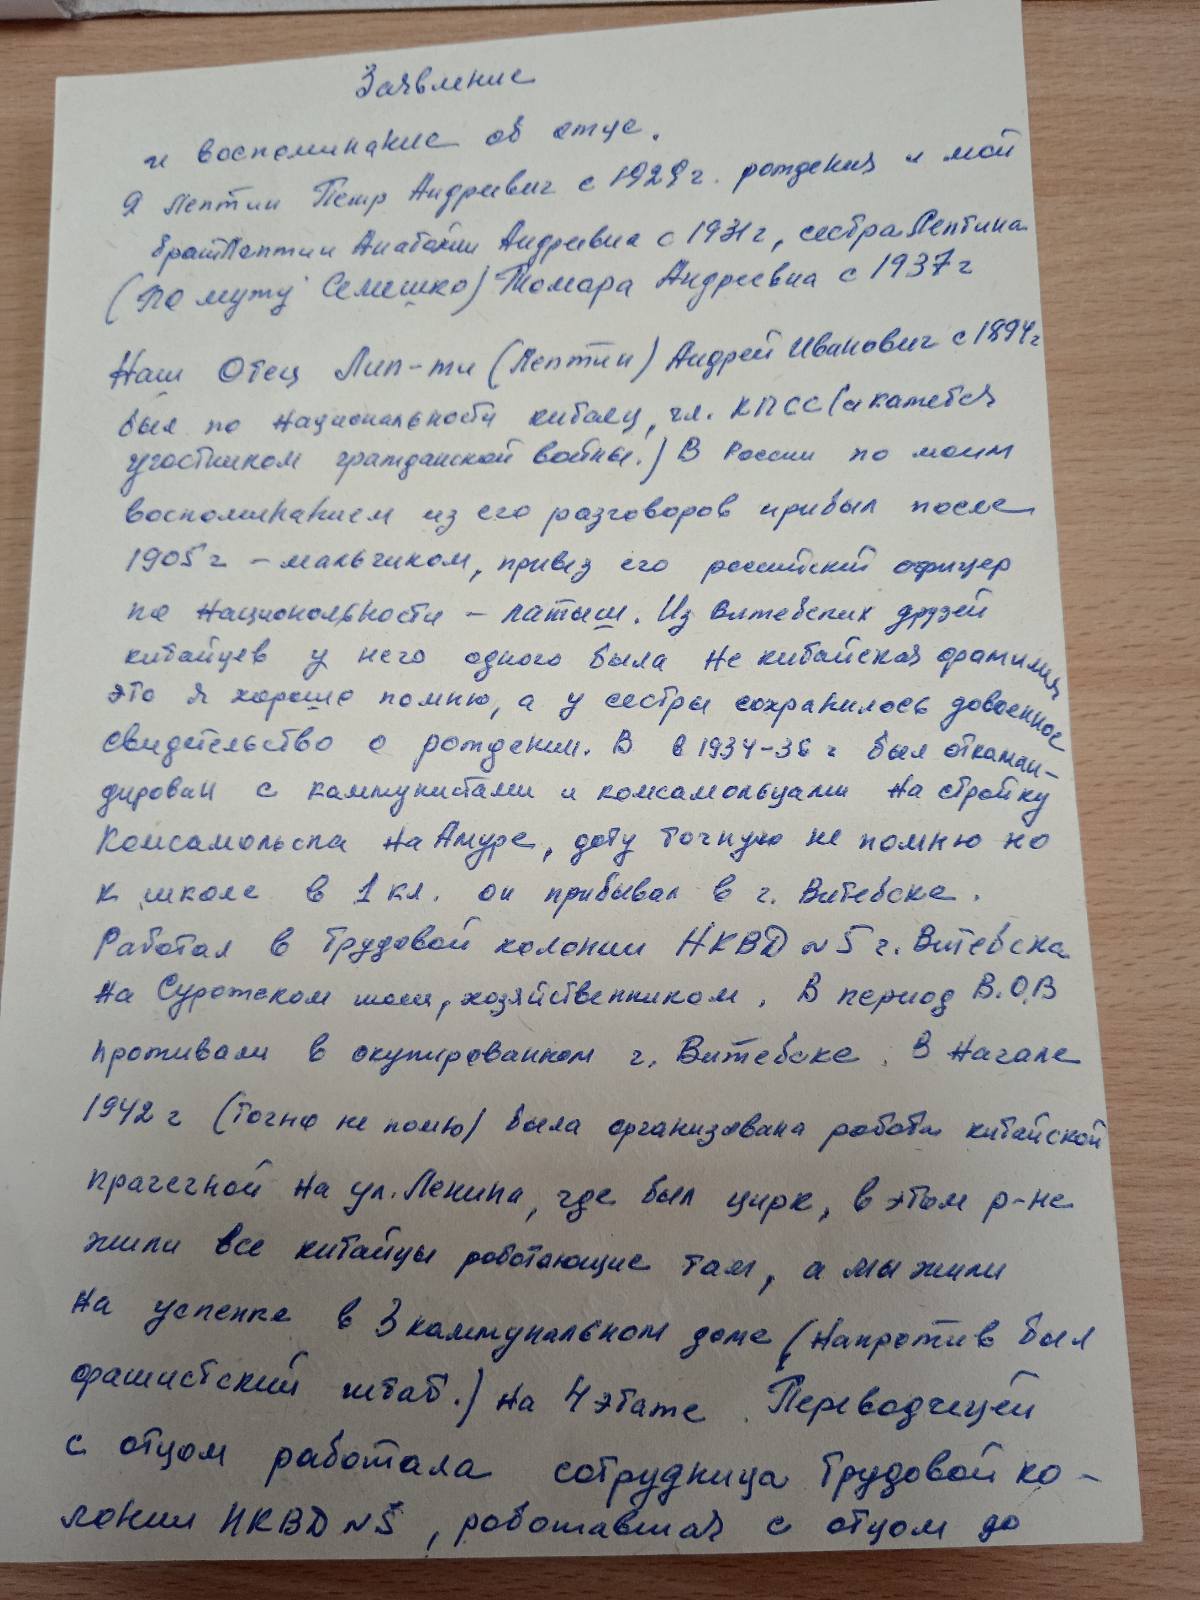 Заявление
и воспоминание об отце.
Я Лептин Петр Андреевич с 1929г. рождения и мой
брат Лептин Анатолий Андреевич с 1931г, сестра Лептина
(по мужу Семешко) Томара Андреевна с 1937г
Наш Отец Лип-ти (Лептин) Андрей Иванович с 1894г
был по национальности китаец, чл. КПСС (и кажется
участником гражданской войны.) В России по моим
воспоминанием из его разговоров прибыл после
1905г - мальчиком, привез его российский офицер
по национольности - латыш. Из Витебских друзей
китайцев у него одного была не китайская фамилия
это я хорошо помню, а у сестры сохранилось довоенное
свидетельство о рождении. В в 1934-36г был откаман-
дирован с каммунистами и комсамольцами на стройку
Комсамольска на Амуре, дату точную не помню но
к школе в 1 кл. он прибывал в г. Витебске.
Работал в трудовой колонии НКВД №5 г. Витебска
на Суражском шоссе, хозяйственником. В период В.О.В
проживали в окупированном г. Витебске. В начале
1942г (точно не помю) была организована работа китайской
прачечной на ул. Ленина, где был цирк, в этом р-не
жили все китайцы работающие там, а мы жили
на успенке в 3 каммунальном доме (напротив был
фашистский штаб.) на 4 этаже. Переводчецей
с отцом работала сотрудница трудовой ко-
лонии НКВД №5, работавшая с отцом до